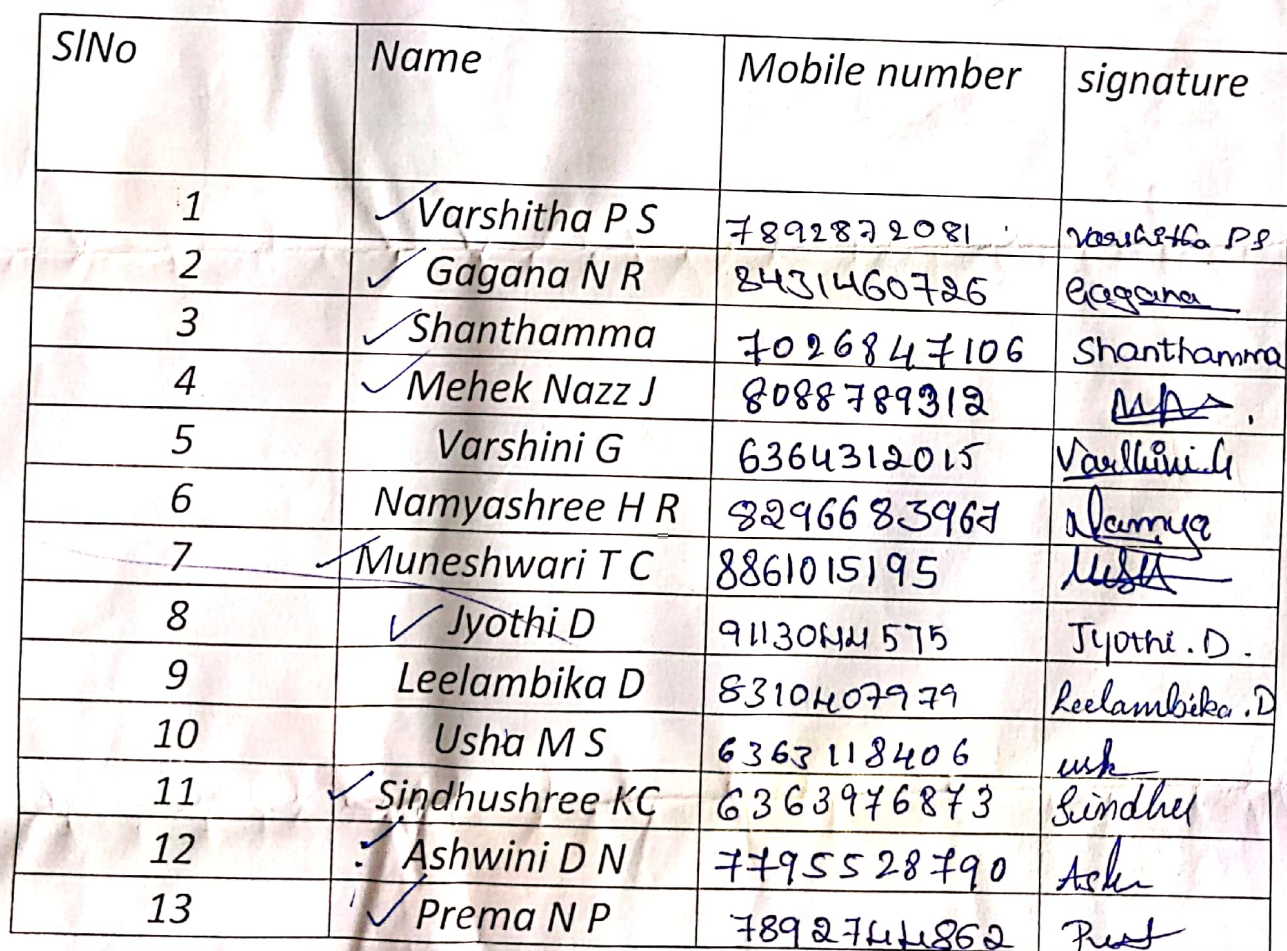 SlNo Name Mobile number signature
1 Varshitha P S 7892872081 Varshitha PS
2 Gagana N R 8431460726 Gagana
3 Shanthamma 7026847106 Shanthamma
4 Mehek Nazz J 8088789312
5 Varshini G 6364312015 Varshini.G
6 Namyashree H R 8296683967 Namya
7 Muneshwari T C 8861015195
8 Jyothi D 9113044575 Jyothi.D.
9 Leelambika D 8310407979 Leelambika.D
10 Usha M S 6363118406
11 Sindhushree KC 6363976873 Sindhu
12 Ashwini D N 7795528790
13 Prema N P 7892744862